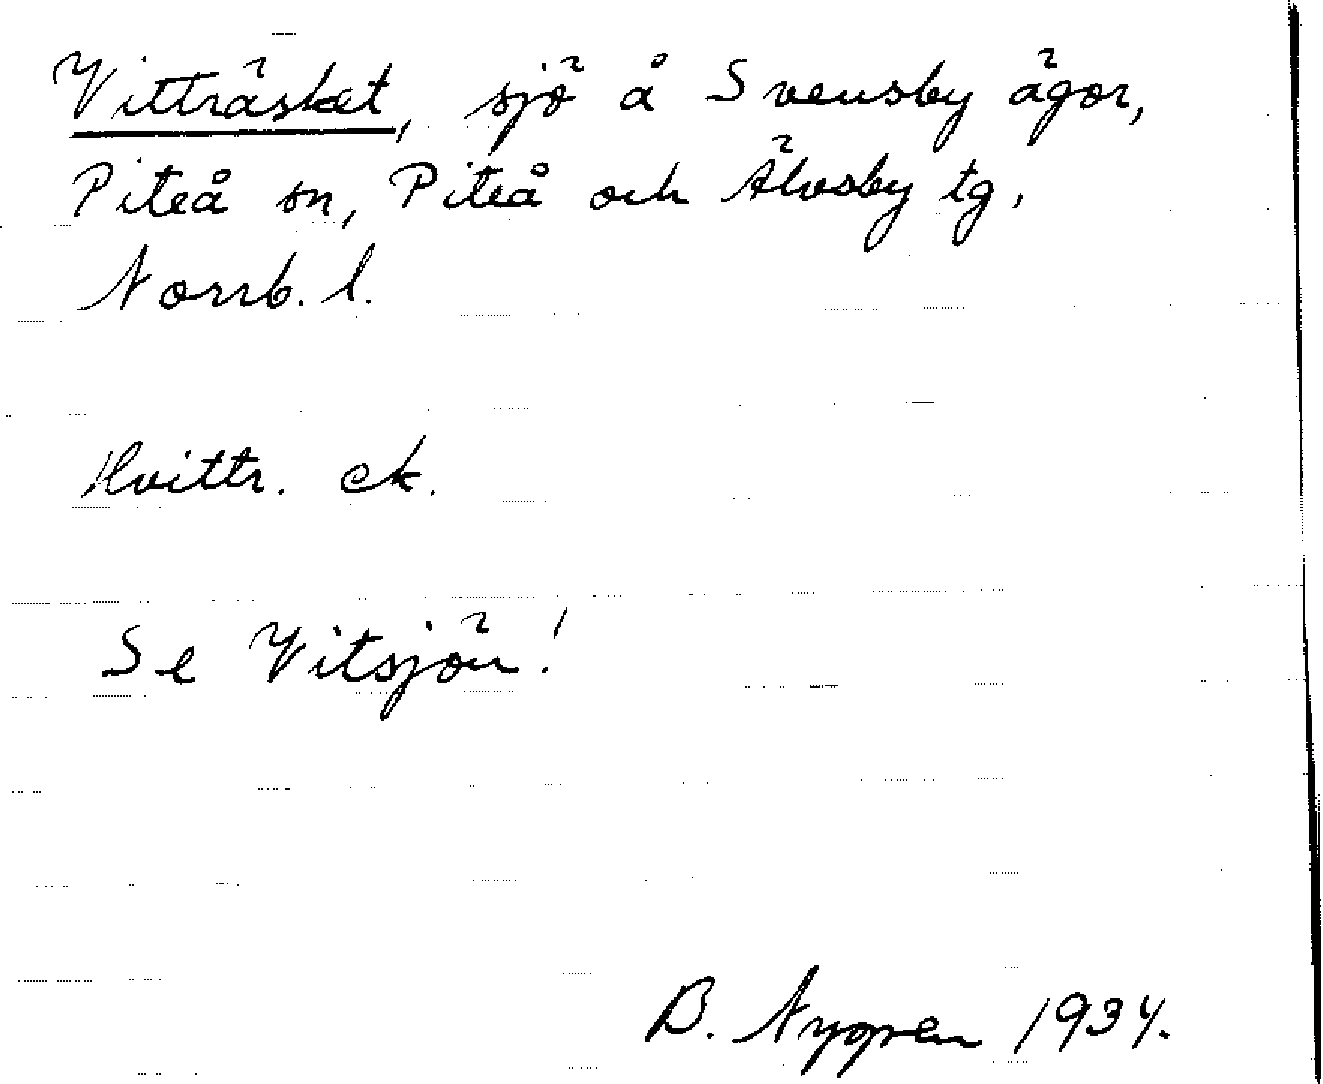 Vitträsket, sjö å Svensby ägor,
Piteå sn, Piteå och Älvsby tg,
Norrb. l.
Hvittr. ek.
Se Vitsjön!
B. Nygren 1934.